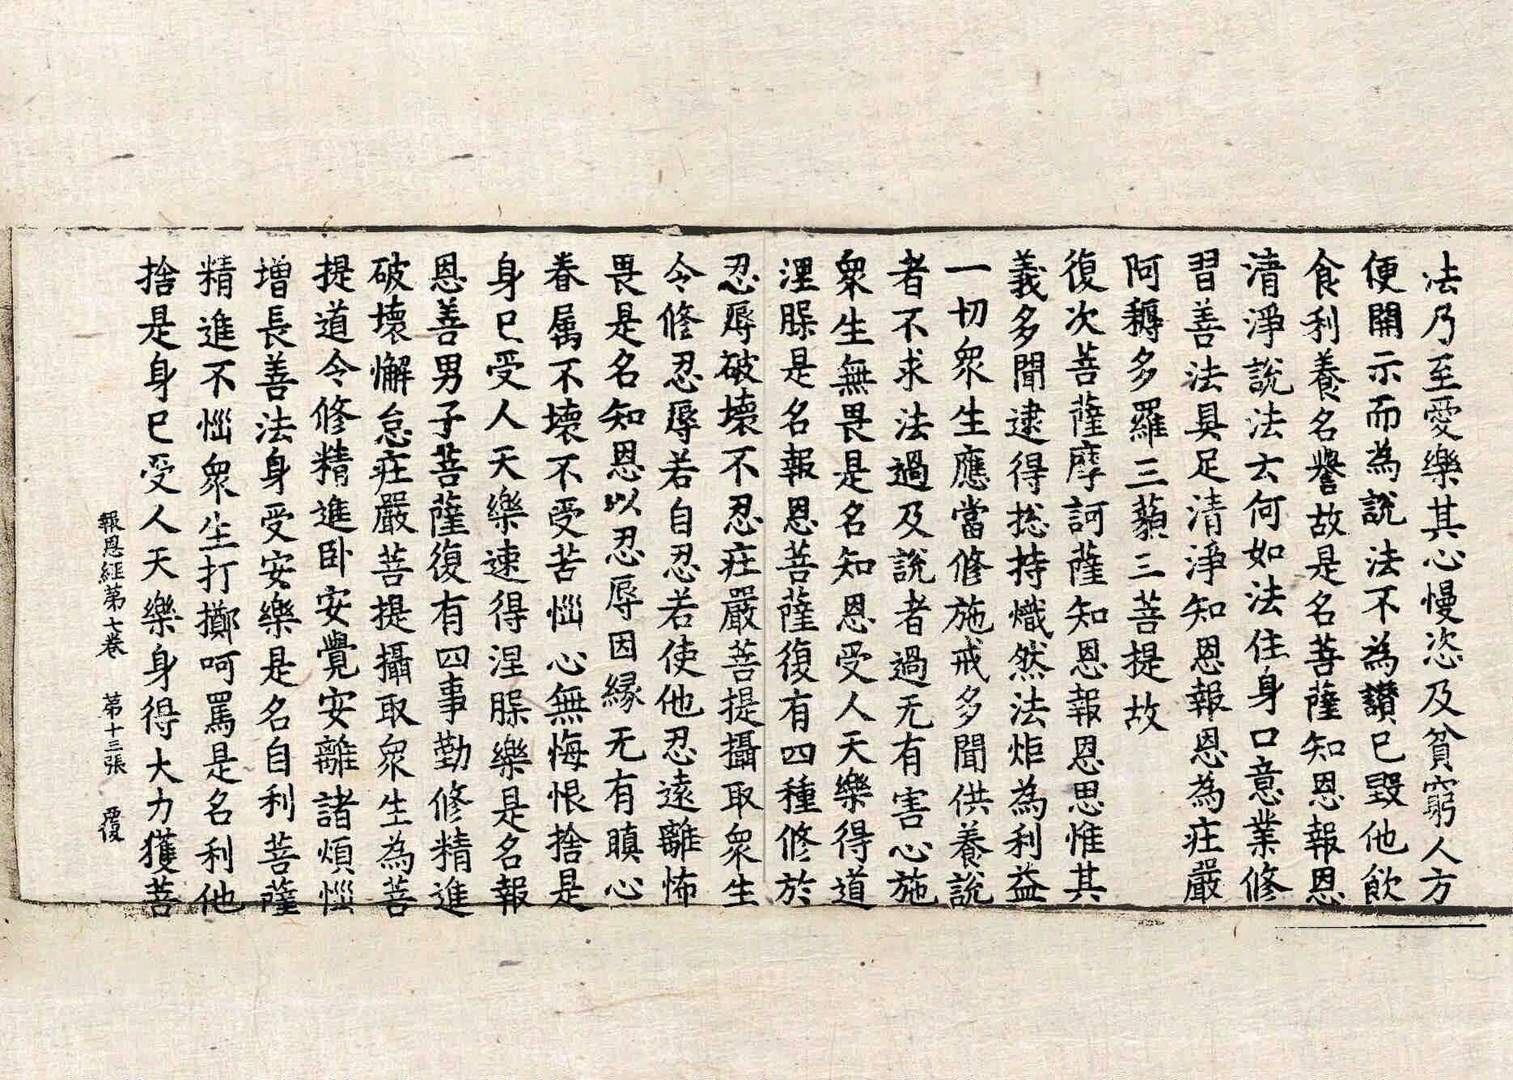 法乃至愛樂其心慢恣及貧窮人方
便開示而為說法不為讃已毀他飲
食利養名譽故是名菩薩知恩報恩
清淨說法云何如法住身口意業修
習善法具足清淨知恩報恩為疘嚴
阿耨多羅三藐三菩提故
復次菩薩摩訶薩知恩報恩思惟其
義多聞逮得捴持熾然法炬為利益
一切衆生應當修施戒多聞供養說
者不求法過及說者過无有害心施
衆生無畏是名知恩受人天樂得道
涅槃是名報恩菩薩復有四種修於
忍辱破壞不忍疘嚴菩提攝取衆生
令修忍辱若自忍若使他忍遠離怖
畏是名知恩以忍辱因緣无有瞋心
眷属不壞不受苦惱心無悔恨捨是
身已受人天樂速得涅槃樂是名報
恩善男子菩薩復有四事勤修精進
破壞懈怠疘嚴菩提攝取衆生為菩
提道令修精進卧安覺安離諸煩惱
增長善法身受安樂是名自利菩薩
精進不惱衆生打擲呵罵是名利他
捨是身已受人天樂身得大力獲菩
報恩經第七卷 第十三張 覆